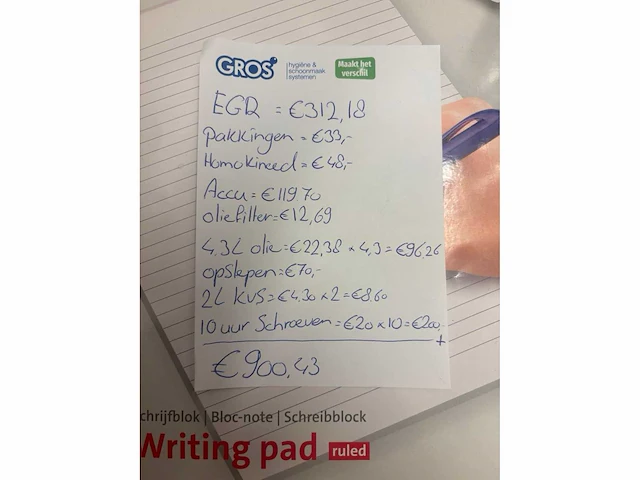 GROS
hygiëne &
schoonmaak
systemen
Maakt het
verschil
EGR = €312,18
pakkingen = €33,-
Homokineed = €48,-
Accu = €119.70
oliefilter = €12,69
4,3L olie = €22,38 x 4,3 = €96,26
opslepen = €70,-
2L KVS = €4,30 x 2 = €8,60
10 uur Schroeven = €20 x 10 = €200,-
+
€900,43
chrijfblok | Bloc-note | Schreibblock
Writing pad ruled